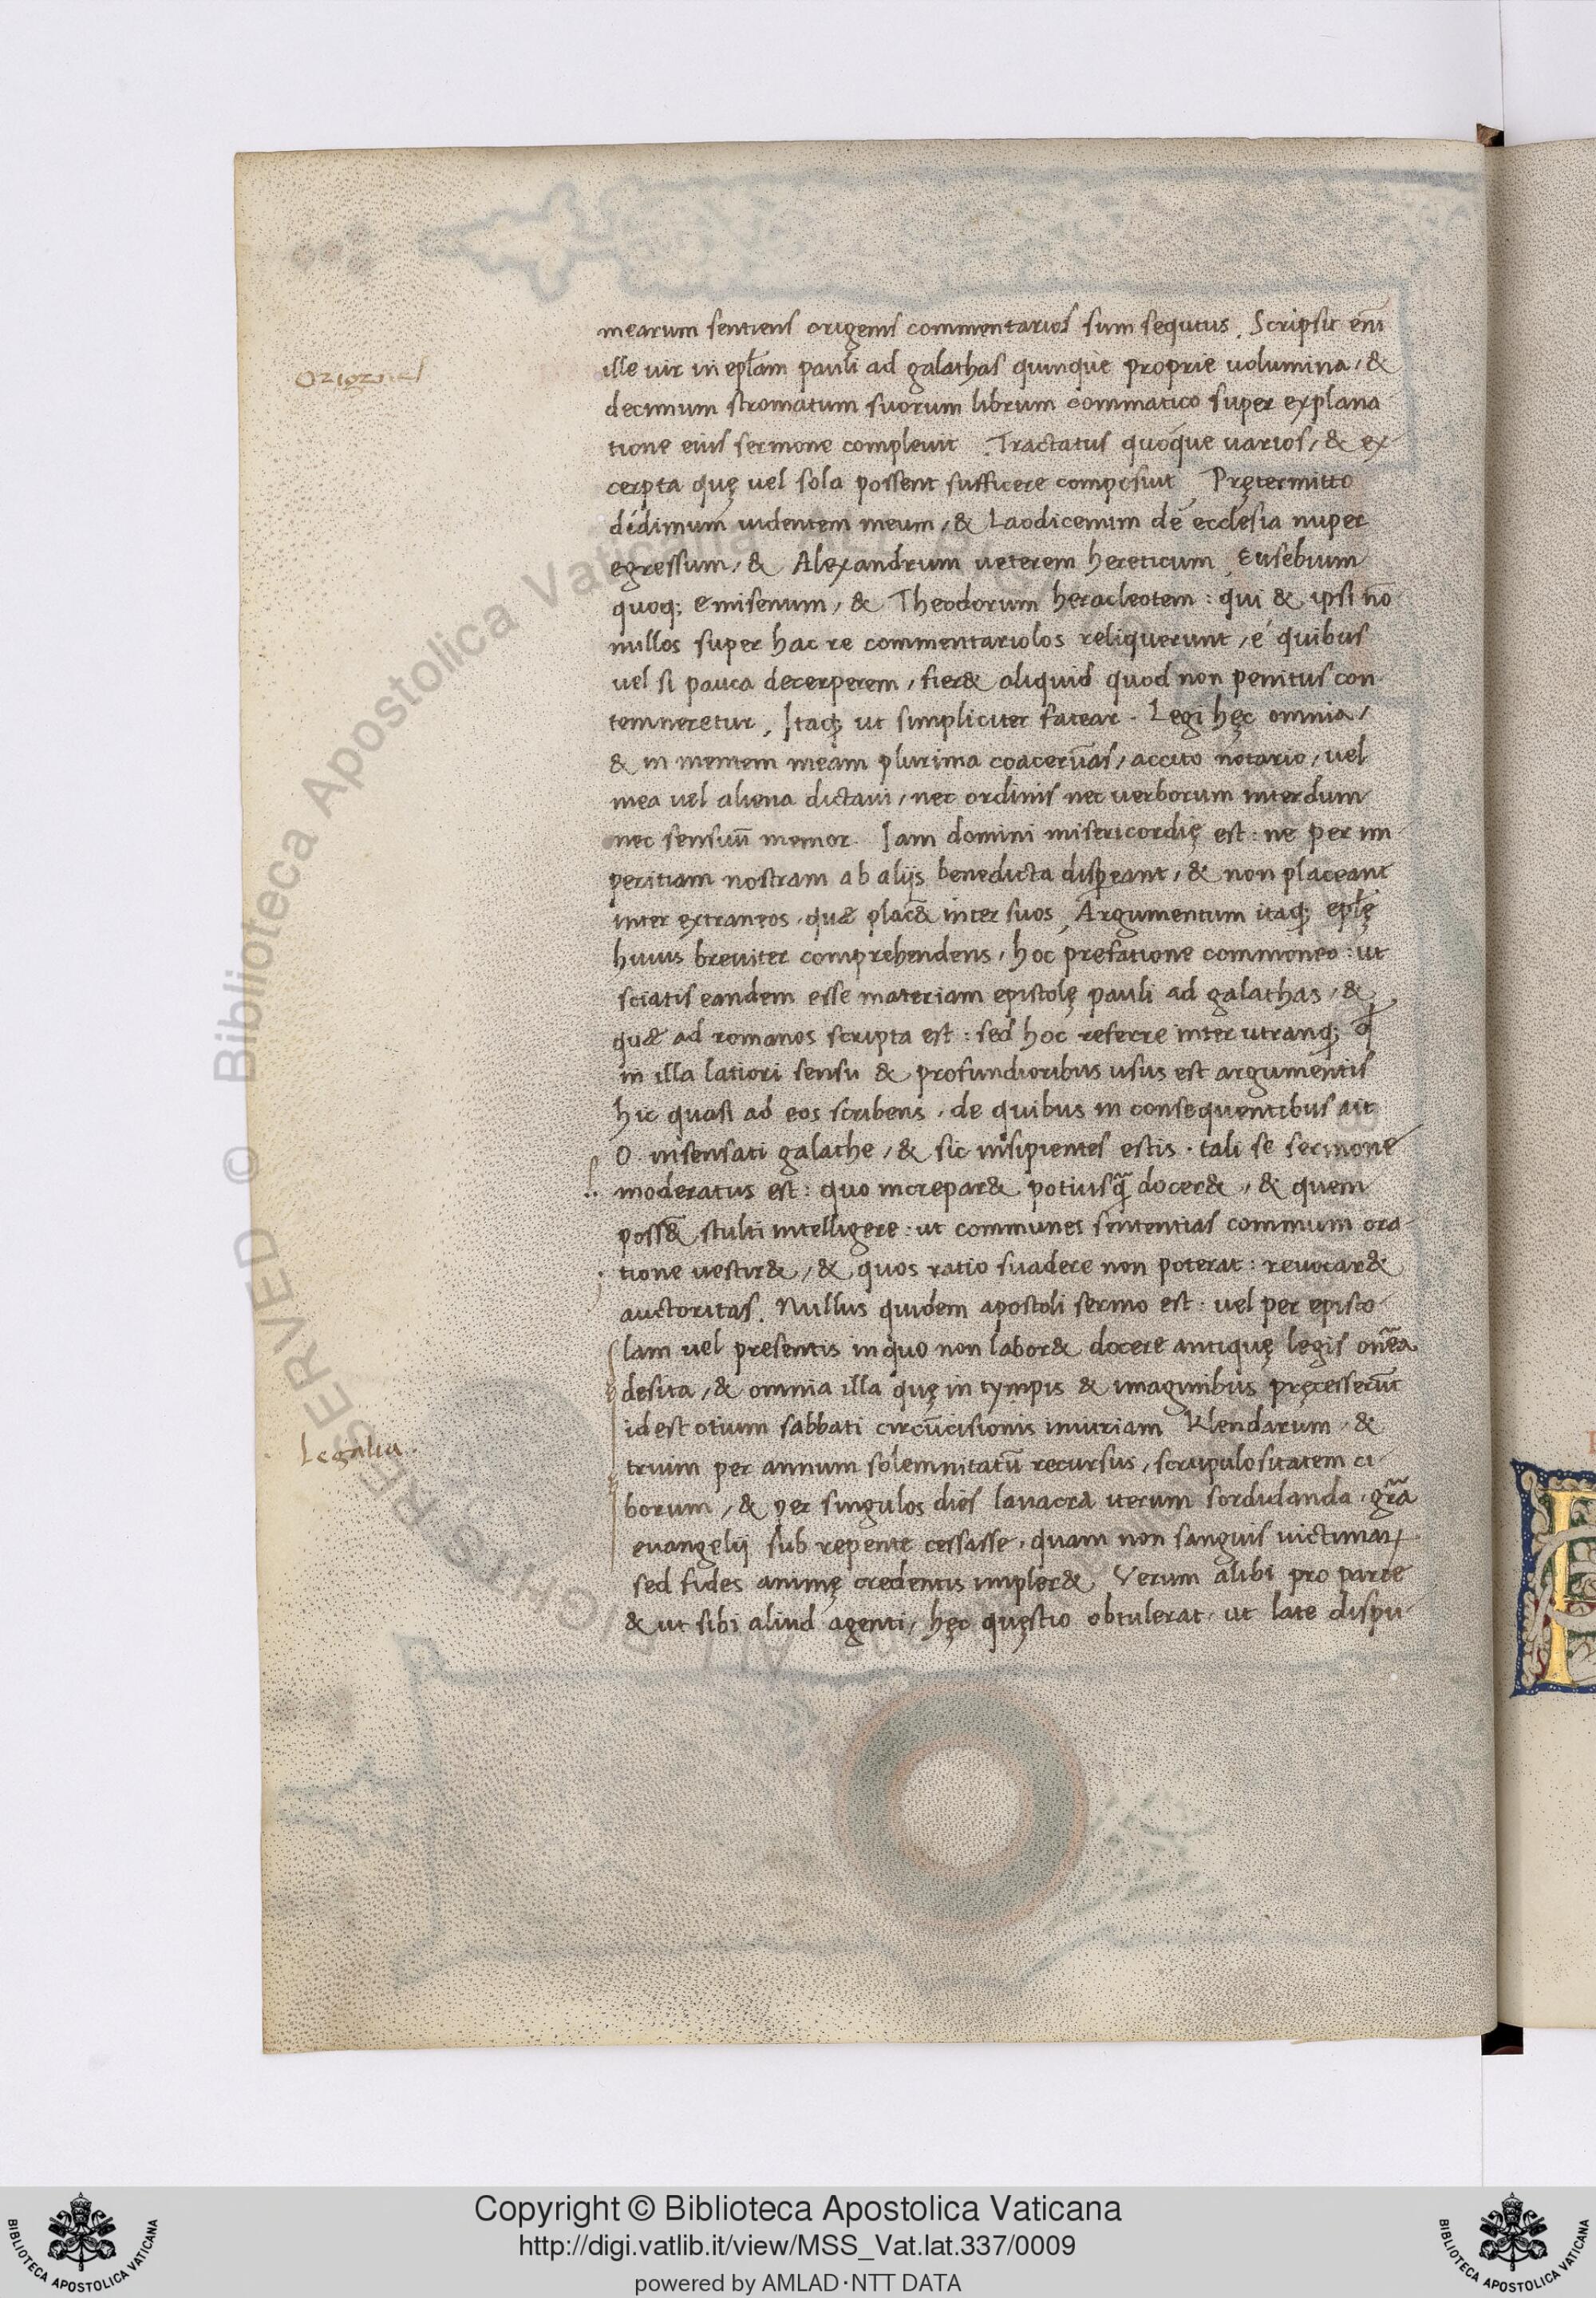 mearum sentiens origenis commentarios sum sequutus. Scripsit eni᷃
Origenes
ille uir in epłam pauli ad galathas quinque proprie uolumina, &
decimum stromatum suorum librum commatico super explana
tione eius sermone compleuit. Tractatus quoque uarios, & ex-
cerpta quę uel sola possent sufficere composuit, Prętermitto
didimum uidentem meum, & Laodicenum de ecclesia nuper
egressum, & Alexandrum ueterem hereticum, Eusebium
quoq; emisenum, & Theodorum heracleotem: qui & ipsi nō
nullos super hac re commentariolos reliquerunt, é quibus
uel si pauca decerperem, fier& aliquid quod non penitus con
temneretur, Itaq; ut simpliciter fatear. Legi hęc omnia,
& in mentem meam plurima coaceru᷃as, accito notario, uel
mea uel aliena dictaui, nec ordinis nec uerborum interdum
nec sensuū memor. Iam domini misericordię est: ne per im
peritiam nostram ab alijs benedicta disp̱eant, & non placeant
inter extraneos, quæ plac& inter suos, Argumentum itaq; epłę
huius breuiter comprehendens, hoc prefatione commoneo: ut
sciatis eandem esse materiam epistolę pauli ad galathas, &
quæ ad romanos scripta est: sed hoc referre inter utranq; ꝙ
in illa latiori sensu & profundioribus usus est argumentis
hic quasi ad eos scribens, de quibus in consequentibus ait
O insensati galathe, & sic insipientes estis. tali se sermone
moderatus est: quo increpar& potiusq̃ docer&, & quem
poss& stulti intelligere: ut communes sententias commum ora-
tione uestir&, & quos ratio suadere non poterat: reuocar&
auctoritas. Nullus quidem apostoli sermo est: uel per episto
lam uel presentis in quo non labor& docere antiquę legis onēa
desita, & omnia illa quę in tympis & imaginibus pręcesserūt
id est otium sabbati circūcisionis iniuriam Klendarum, &
Legalia.
trium per annum solemnitatū recursus, scrupulositatem ci-
borum, & per singulos dies lauacra iterum sordidanda, grãa
euangelij sub repente cessasse, quam non sanguis uictimaꝝ
sed fides animę credentis impler& Verum alibi pro parte
& ut sibi aliud agenti, hęc quęstio obtulerat, ut late dispu-
Copyright © Biblioteca Apostolica Vaticana
http://digi.vatlib.it/view/MSS_Vat.lat.337/0009
powered by AMLAD·NTT DATA
BIBLIOTECA APOSTOLICA VATICANA
BIBLIOTECA APOSTOLICA VATICANA